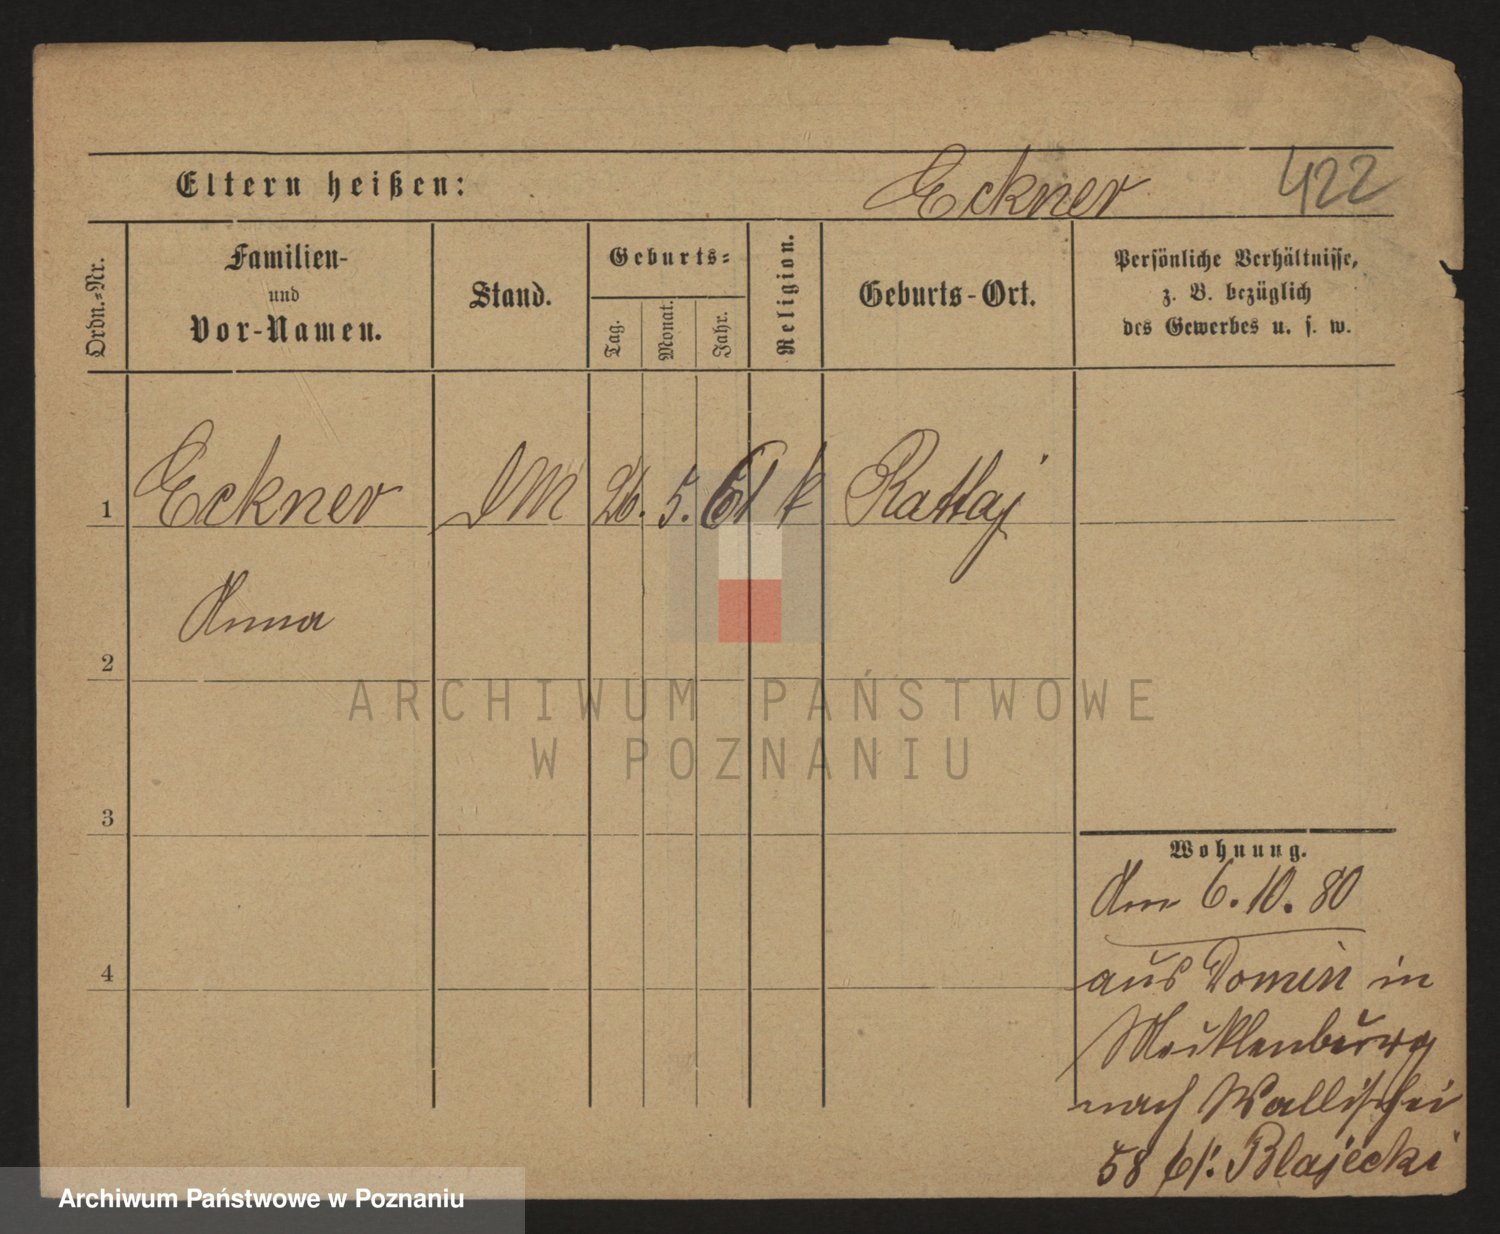 Eltern heißen: Eckner 422
Ordn.=Nr.
Familien-
und
Vor-Namen.
Stand.
Geburts=
Tag.
Monat.
Jahr.
Religion.
Geburts-Ort.
Persönliche Verhältnisse,
z. B. bezüglich
des Gewerbes u. s. w.
1 Eckner DM 26. 5. 61 k Rattaj
Anna
2
ARCHIWUM PAŃSTWOWE
W POZNANIU
3
Wohnung.
Am 6.10.80
4
aus Domin in
Mecklenburg
nach Wallischei
58 bl. Blajecki
Archiwum Państwowe w Poznaniu